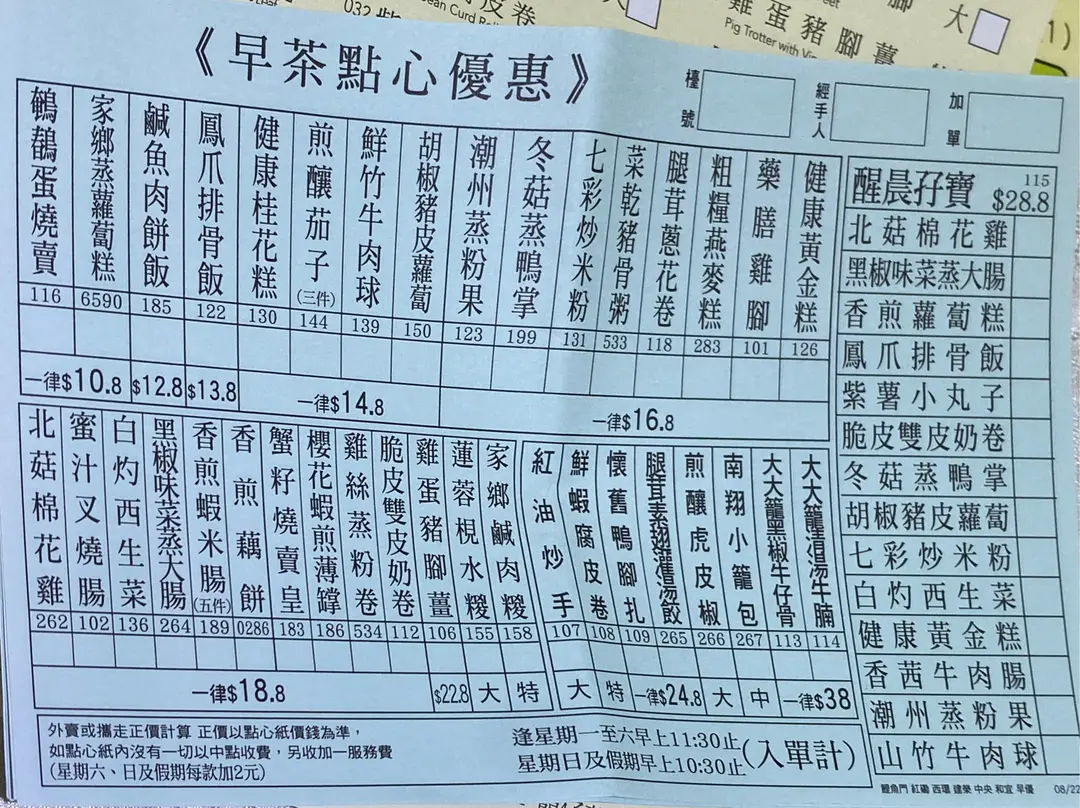 032
ean Curd Rol
皮卷
雞蛋豬腳薑
Pig Trotter with Vi
大
《早茶點心優惠》
檯號
經手人
加單
鵪鶉蛋燒賣
家鄉蒸蘿蔔糕
鹹魚肉餅飯
鳳爪排骨飯
健康桂花糕
煎釀茄子(三件)
鮮竹牛肉球
胡椒豬皮蘿蔔
潮州蒸粉果
冬菇蒸鴨掌
七彩炒米粉
菜乾豬骨粥
腿茸蔥花卷
粗糧燕麥糕
藥膳雞腳
健康黃金糕
116 6590 185 122 130 144 139 150 123 199 131 533 118 283 101 126
一律$10.8 $12.8 $13.8 一律$14.8 一律$16.8
北菇棉花雞
蜜汁叉燒腸
白灼西生菜
黑椒味菜蒸大腸
香煎蝦米腸(五件)
香煎藕餅
蟹籽燒賣皇
櫻花蝦煎薄罉
雞絲蒸粉卷
脆皮雙皮奶卷
雞蛋豬腳薑
蓮蓉梘水糉
家鄉鹹肉糉
紅油炒手
鮮蝦腐皮卷
懷舊鴨腳扎
腿茸素翅灌湯餃
煎釀虎皮椒
南翔小籠包
大大籠黑椒牛仔骨
大大籠清湯牛腩
262 102 136 264 189 0286 183 186 534 112 106 155 158 107 108 109 265 266 267 113 114
一律$18.8 $22.8 大 特 大 特 一律$24.8 大 中 一律$38
醒晨孖寶 115 $28.8
北菇棉花雞
黑椒味菜蒸大腸
香煎蘿蔔糕
鳳爪排骨飯
紫薯小丸子
脆皮雙皮奶卷
冬菇蒸鴨掌
胡椒豬皮蘿蔔
七彩炒米粉
白灼西生菜
健康黃金糕
香茜牛肉腸
潮州蒸粉果
山竹牛肉球
外賣或攜走正價計算 正價以點心紙價錢為準，
如點心紙內沒有一切以中點收費，另收加一服務費
(星期六、日及假期每款加2元)
逢星期一至六早上11:30止
星期日及假期早上10:30止
(入單計)
鯉魚門 紅磡 西環 建榮 中央 和宜 早優 08/22